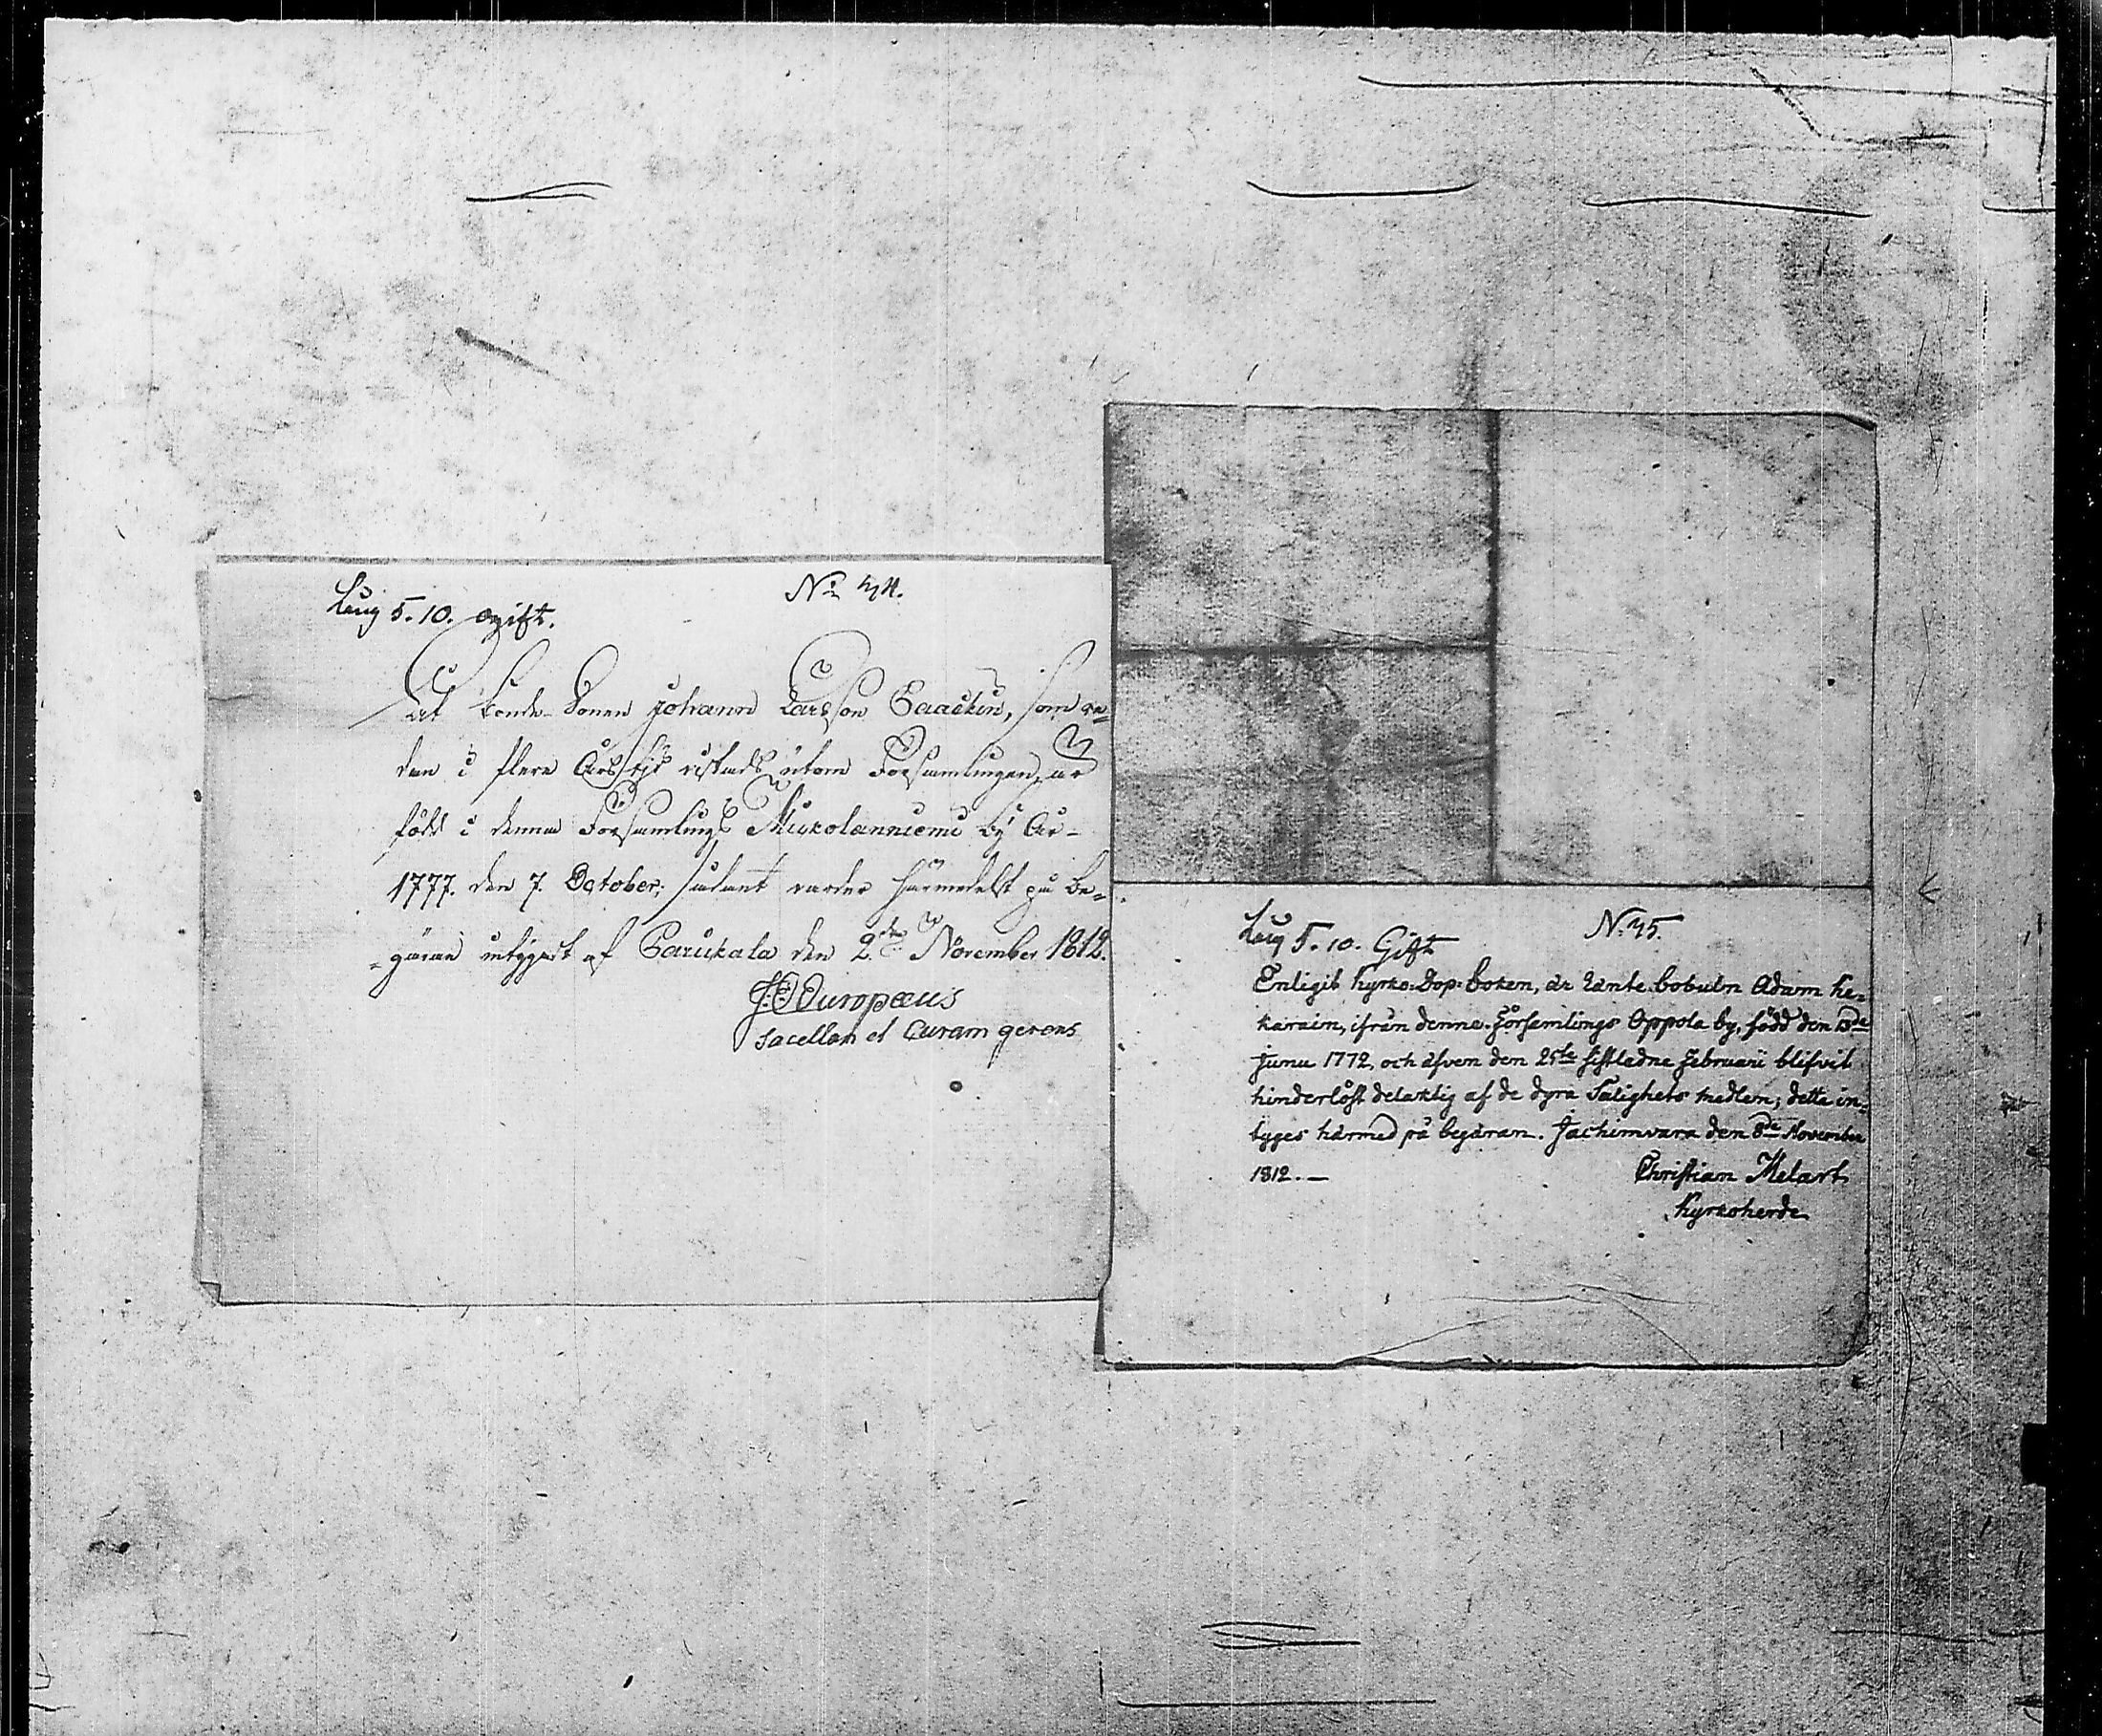 Lång 5. 10. ogift.
No 44.
At Bonde-Sonen Johann Larsson Paackin, som re-
dan i flere Års tid vistads utom Församlingen, är
född i denna Församlings Mukolanniemi by År
1777. den 7 October; sådant varder härmedelst på be-
gäran intygadt af Parikala den 2dra November 1812.
Europæus
Sacellan et Curam gerens
Lång 5. 10. Gift
N. 45.
Enligit Kyrko-Dop-Boken, är Lante bobuln Adam he-
karain, ifrån denna Församlings Oppola by, född den 13de
Junii 1772, och äfven den 25te sistledne Februarii blifvit
hinderlöst delaktig af de dyra Salighets medlen; detta in-
tyges härmed på begäran. Jachimvara den 8de November
1812. —
Christian Melart
Kyrkoherde